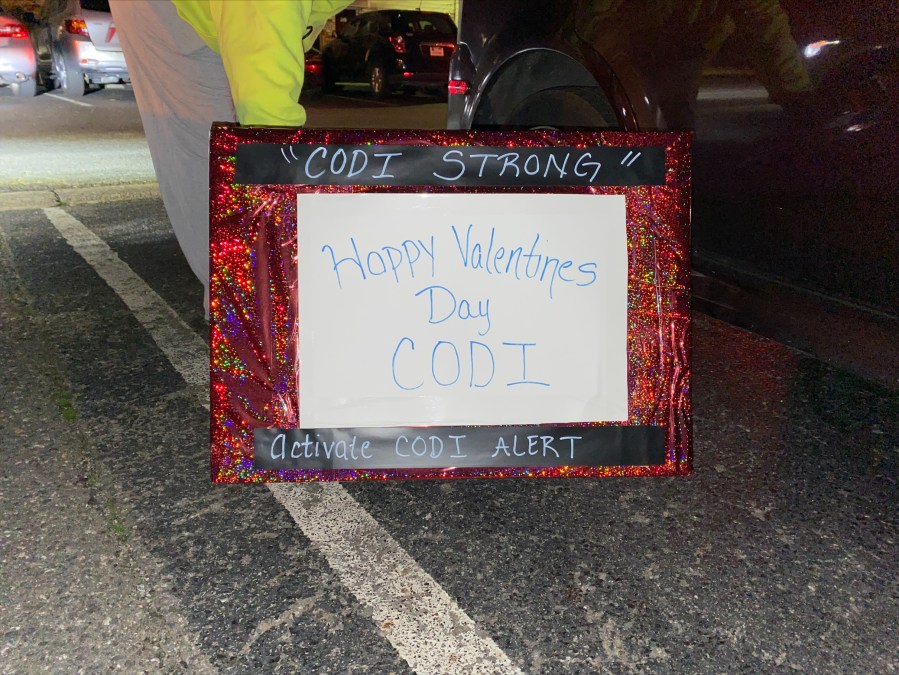 "CODI STRONG"
Happy Valentines
Day
CODI
Activate CODI ALERT